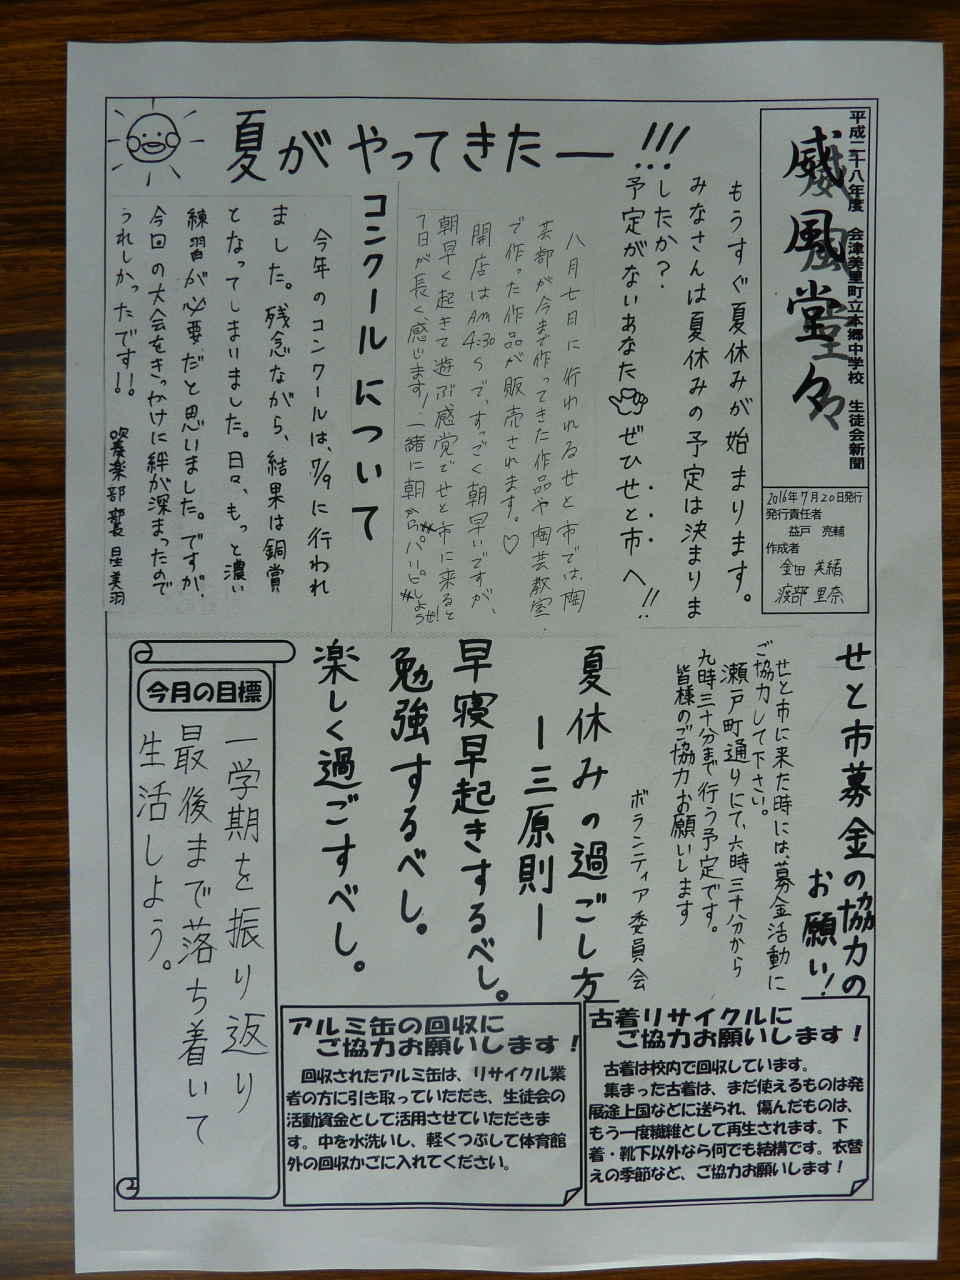 平成二十八年度 会津美里町立本郷中学校 生徒会新聞
威風堂々
2016年7月20日発行
発行責任者
益戸 亮輔
作成者
金田 美緒
渡部 里奈
夏がやってきたー!!!
もうすぐ夏休みが始まります。
みなさんは夏休みの予定は決まりま
したか?
予定がないあなた ぜひせと市へ!!
八月七日に行われるせと市では、陶
芸部が今まで作ってきた作品や陶芸教室
で作った作品が販売されます。♡
開店はAm4:30〜で、すっごく朝早いですが、
朝早く起きて遊ぶ感覚でせと市に来ると
1日が長く感じます!一緒に朝からパーピしようぜ!
コンクールについて
今年のコンクールは、7/9に行われ
ました。残念ながら、結果は銅賞
となってしまいました。日々、もっと濃い
練習が必要だと思いました。ですが、
今回の大会をきっかけに絆が深まったので
うれしかったです!!
吹奏楽部部長 星 美羽
せと市募金の協力の
お願い!
せと市に来た時には、募金活動に
ご協力して下さい。
瀬戸町通りにて、六時三十分から
九時三十分まで行う予定です。
皆様のご協力お願いします
ボランティア委員会
夏休みの過ごし方
ー三原則ー
早寝早起きするべし。
勉強するべし。
楽しく過ごすべし。
今月の目標
一学期を振り返り
最後まで落ち着いて
生活しよう。
古着リサイクルに
ご協力お願いします!
古着は校内で回収しています。
集まった古着は、まだ使えるものは発
展途上国などに送られ、傷んだものは、
もう一度繊維として再生されます。下
着・靴下以外なら何でも結構です。衣替
えの季節など、ご協力お願いします!
アルミ缶の回収に
ご協力お願いします!
回収されたアルミ缶は、リサイクル業
者の方に引き取っていただき、生徒会の
活動資金として活用させていただきま
す。中を水洗いし、軽くつぶして体育館
外の回収かごに入れてください。